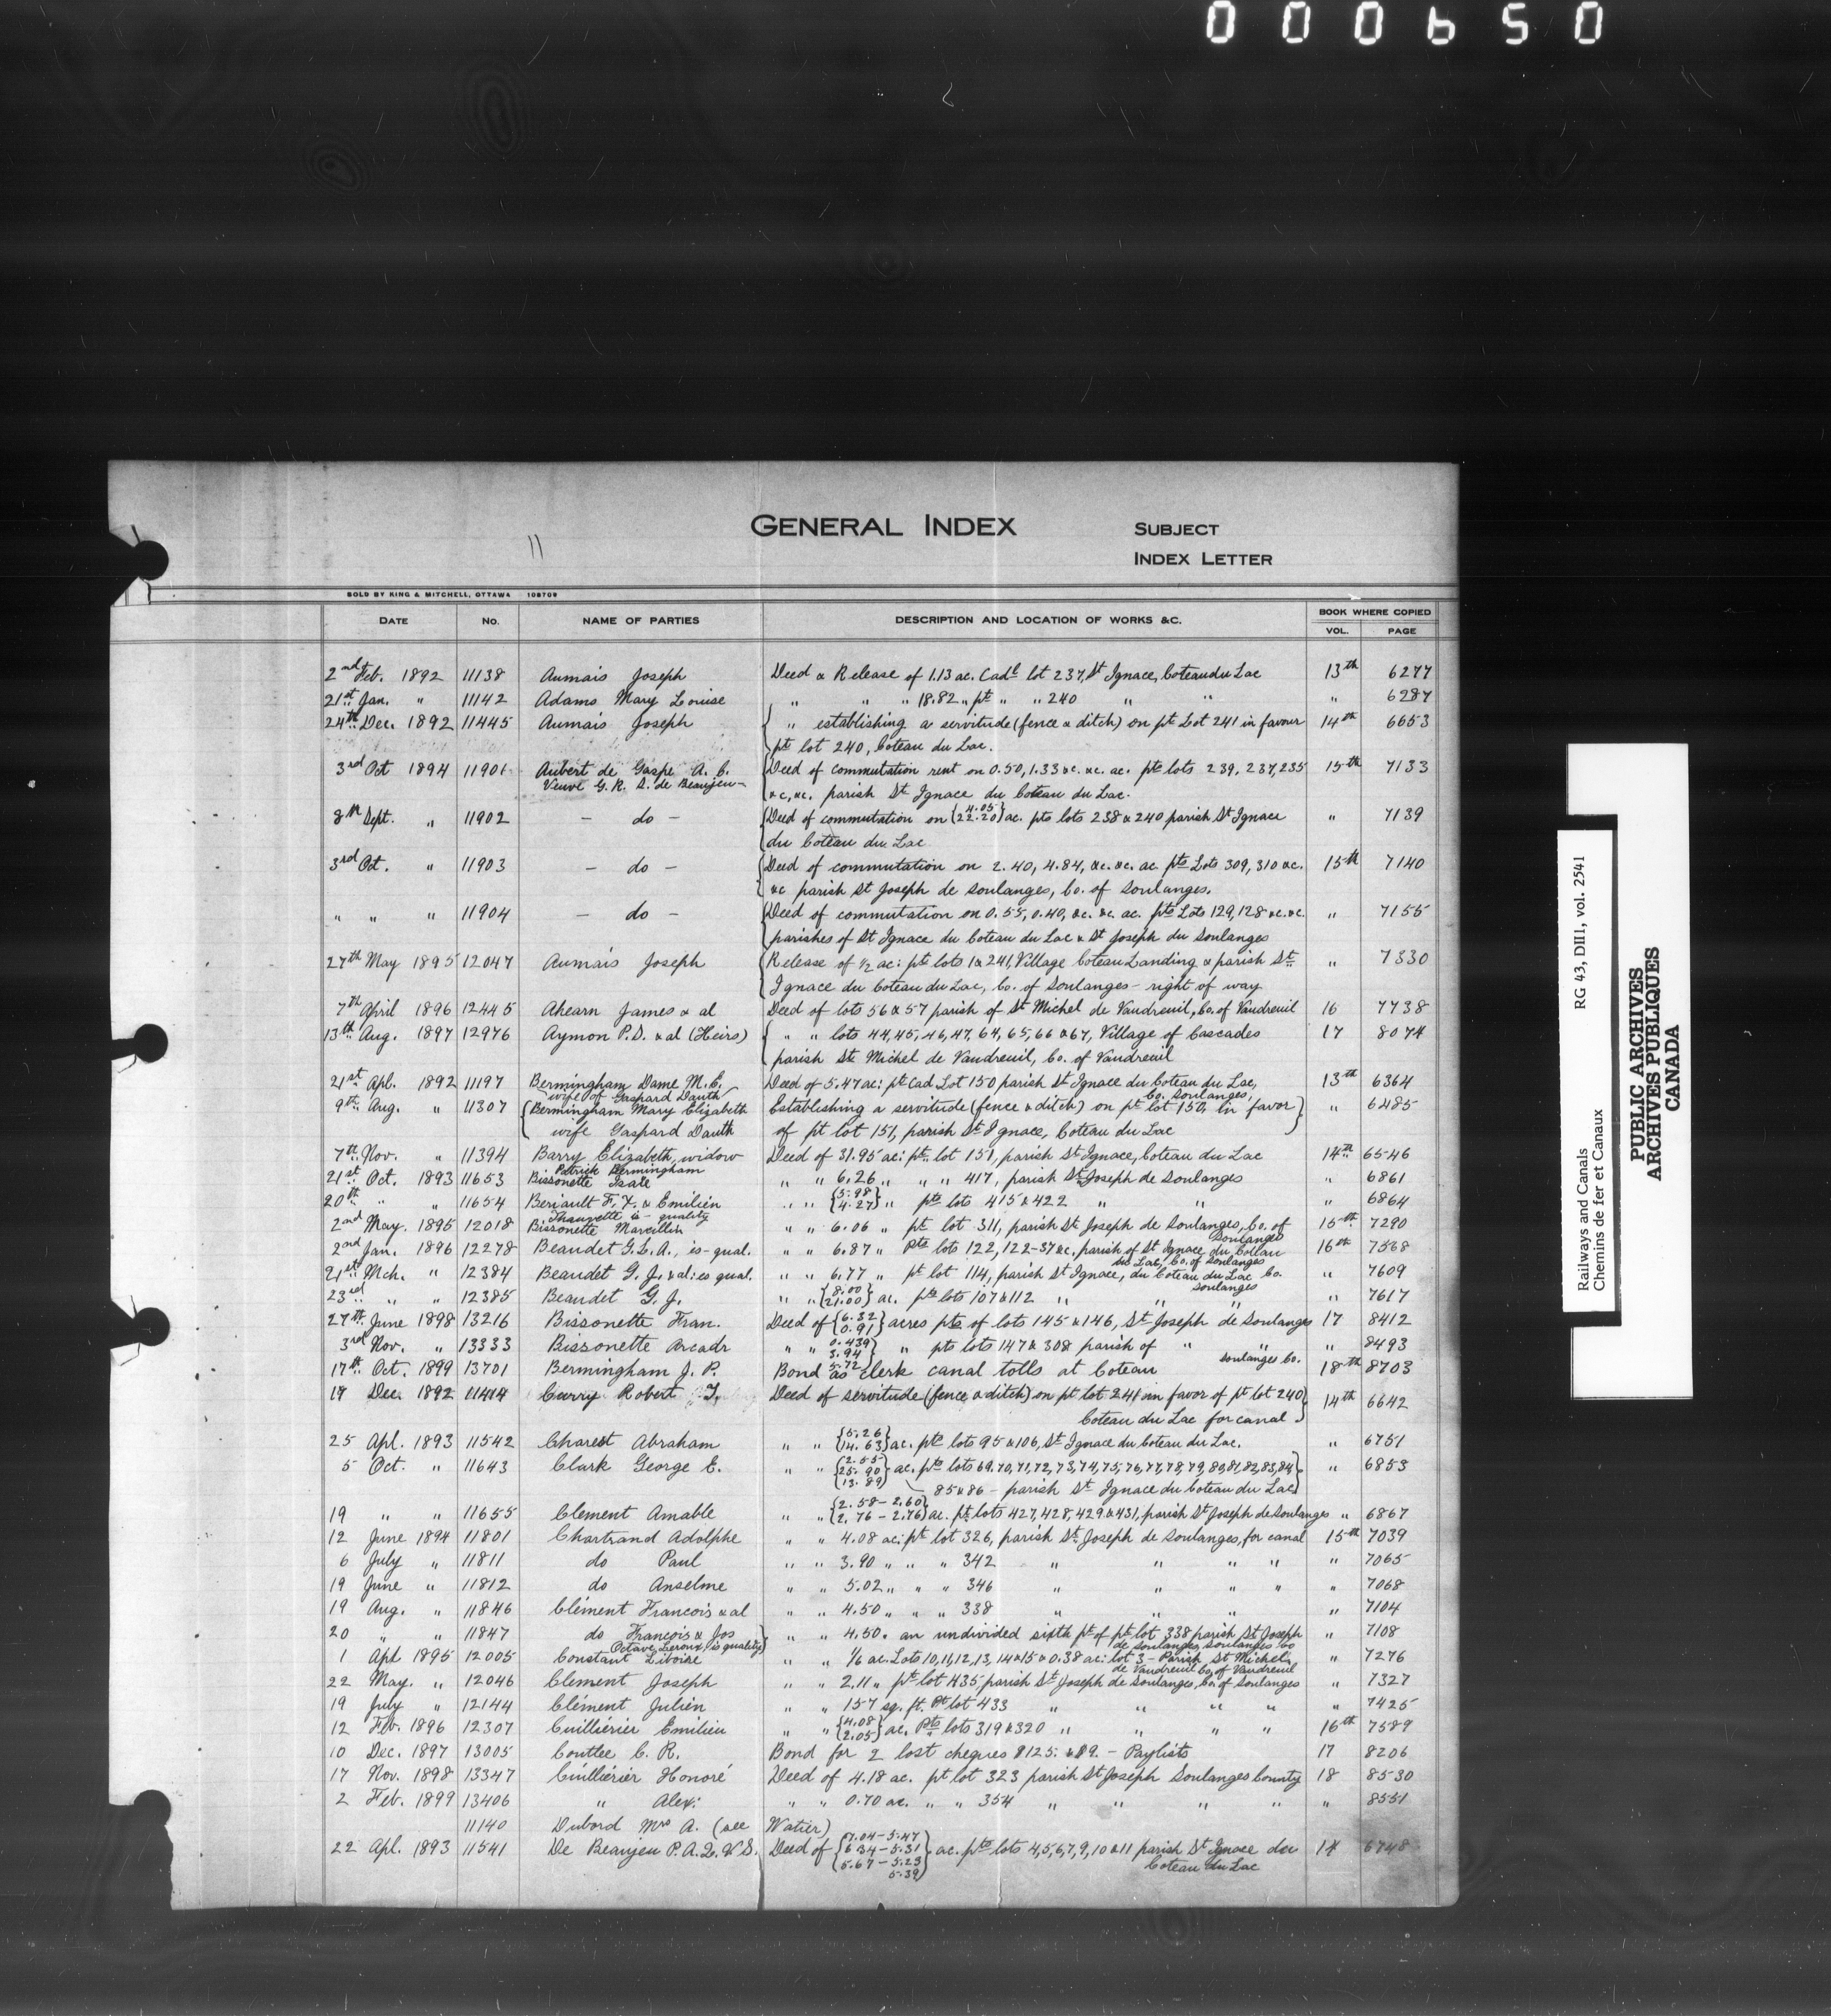 000650
GENERAL INDEX
SUBJECT
INDEX LETTER
11
SOLD BY KING & MITCHELL, OTTAWA 108708
DATE NO. NAME OF PARTIES DESCRIPTION AND LOCATION OF WORKS &C. BOOK WHERE COPIED
VOL. PAGE
2nd Feb. 1892 11138 Aumais Joseph Deed & Release of 1.13 ac. Cadl lot 237, St Ignace, Coteau du Lac 13th 6277
21st Jan. " 11142 Adams Mary Louise " " " 18.82 " pt " " 240 " " " 6287
24th Dec. 1892 11445 Aumais Joseph " establishing a servitude (fence & ditch) on pt Lot 241 in favour 14th 6653
pt lot 240, Coteau du Lac.
3rd Oct 1894 11901 Aubert de Gaspe A. C. Deed of commutation rent on 0.50, 1.33 &c. &c. ac. pts lots 239, 237, 235 15th 7133
Veuve G. R. S. de Beaujeu- &c, &c. parish St Ignace du Coteau du Lac.
8th Sept. " 11902 - do - Deed of commutation on {4.05 22.20} ac. pts lots 238 & 240 parish St Ignace " 7139
du Coteau du Lac
3rd Oct. " 11903 - do - Deed of commutation on 2.40, 4.84, &c. &c. ac pts Lots 309, 310 &c. 15th 7140
&c parish St Joseph de Soulanges, Co. of Soulanges.
" " " 11904 - do - Deed of commutation on 0.55, 0.40, &c. &c. ac. pts Lots 129, 128 &c. &c. " 7155
parishes of St Ignace du Coteau du Lac & St Joseph du Soulanges
27th May 1895 12047 Aumais Joseph Release of 1/2 ac: pts lots 1 & 241, Village Coteau Landing & parish St. " 7330
Ignace du Coteau du Lac, Co. of Soulanges - right of way
7th April 1896 12445 Ahearn James & al Deed of lots 56 & 57 parish of St Michel de Vaudreuil, Co. of Vaudreuil 16 7738
13th Aug. 1897 12976 Aymon P.D. & al (Heirs) " " lots 44, 45, 46, 47, 64, 65, 66 & 67, Village of Cascades 17 8074
parish St. Michel de Vaudreuil, Co. of Vaudreuil
21st Apl. 1892 11197 Bermingham Dame M.E. Deed of 5.47 ac: pt Cad Lot 150 parish St Ignace du Coteau du Lac, 13th 6364
wife of Gaspard Dauth Co. Soulanges,
9th Aug. " 11307 Bermingham Mary Elizabeth Establishing a servitude (fence & ditch) on pt lot 150, in favor " 6485
wife Gaspard Dauth of pt lot 151, parish St Ignace, Coteau du Lac
7th Nov. " 11394 Barry Elizabeth, widow Deed of 31.95 ac: pt. lot 151, parish St Ignace, Coteau du Lac 14th 6546
Patrick Bermingham
21st Oct. 1893 11653 Bissonette Isaie " " 6.26 " " " 417, parish St. Joseph de Soulanges " 6861
20th " " 11654 Beriault F. X. & Emilien " " {5.98 4.27} " pts lots 415 & 422 " " " 6864
Thauvette is-quality
2nd May. 1895 12018 Bissonette Marcellin " " 6.06 " pt lot 311, parish St Joseph de Soulanges, Co. of 15th 7290
Soulanges
2nd Jan. 1896 12278 Beaudet G.L.A., is-qual. " " 6.87 " Pts lots 122, 122-37 &c. parish of St Ignace du Coteau 16th 7568
du Lac, Co. of Soulanges
21st Mch. " 12384 Beaudet G. J. & al: es qual. " " 6.77 " pt lot 114, parish St Ignace, du Coteau du Lac Co. " 7609
Soulanges
23rd " " 12385 Beaudet G. J. " " {8.00 21.00} ac. pts lots 107 & 112 " " " " 7617
27th June 1898 13216 Bissonette Fran. Deed of {6.32 0.91} acres pts of lots 145 & 146, St Joseph de Soulanges 17 8412
3rd Nov. " 13333 Bissonette Arcadr " " {0.439 3.94 5.72} " pts lots 147 & 308 parish of " " " 8493
Soulanges Co.
17th Oct. 1899 13701 Bermingham J. P. Bond as clerk canal tolls at Coteau 18th 8703
19 Dec. 1892 11414 Curry Robert J, Deed of servitude (fence & ditch) on pt lot 241 on favor of pt lot 240 14th 6642
Coteau du Lac for canal
25 Apl. 1893 11542 Charest Abraham " " {5.26 14.63} ac. pts lots 95 & 106, St Ignace du Coteau du Lac. " 6751
5 Oct. " 11643 Clark George E. " " {2.55 25.90 13.89} ac. pts lots 69, 70, 71, 72, 73, 74, 75, 76, 77, 78, 79, 80, 81, 82, 83, 84 " 6853
85 & 86 - parish St Ignace du Coteau du Lac
19 " " 11655 Clement Amable " " {2.58 - 2.60 2.76 - 2.76} ac. pt lots 427, 428, 429 & 431, parish St Joseph de Soulanges " 6867
12 June 1894 11801 Chartrand Adolphe " " 4.08 ac: pt lot 326, parish St. Joseph de Soulanges, for canal 15th 7039
6 July " 11811 do Paul " " 3.90 " " " 342 " " " " " 7065
19 June " 11812 do Anselme " " 5.02 " " " 346 " " " " " 7068
19 Aug. " 11846 Clément Francois & al " " 4.50 " " " 338 " " " " 7104
20 " " 11847 do François & Jos " " 4.50. an undivided sixth pt of pt lot 338 parish St Joseph " 7108
Octave Leroux, is quality de Soulanges, Soulanges Co
1 Apl 1895 12005 Constant Liboire " " 1/6 ac. Lots 10, 11, 12, 13, 14 & 15 & 0.38 ac: lot 3 - Parish St Michel " 7276
de Vaudreuil Co. of Vaudreuil
22 May. " 12046 Clement Joseph " " 2.11 " pt lot 435, parish St Joseph de Soulanges, Co. of Soulanges " 7327
19 July " 12144 Clément Julien " " 157 sq. ft. Pt lot 433 " " " " " 7425
12 Feb. 1896 12307 Cuilliérièr Emilien " " {4.08 2.05} ac. Pts lots 319 & 320 " " " " 16th 7589
10 Dec. 1897 13005 Coutlee C. R. Bond for 2 lost cheques $125. & $9. - Paylists 17 8206
17 Nov. 1898 13347 Cuilliérièr Honoré Deed of 4.18 ac. pt lot 323 parish St Joseph Soulanges county 18 8530
2 Feb. 1899 13406 " Alex: " " 0.70 ac. " " 354 " " " " " 8551
11140 Dubord Mrs A. (see Watier)
22 Apl. 1893 11541 De Beaujeu P.A.Q. V S. Deed of {7.04 - 5.47 6 34 - 5.31 5.67 - 5.23 5.39} ac. pts lots 4, 5, 6, 7, 9, 10 & 11 parish St Ignace du 14 6748
Coteau du Lac
RG 43, DIII, vol. 2541
Railways and Canals
Chemins de fer et Canaux
PUBLIC ARCHIVES
ARCHIVES PUBLIQUES
CANADA